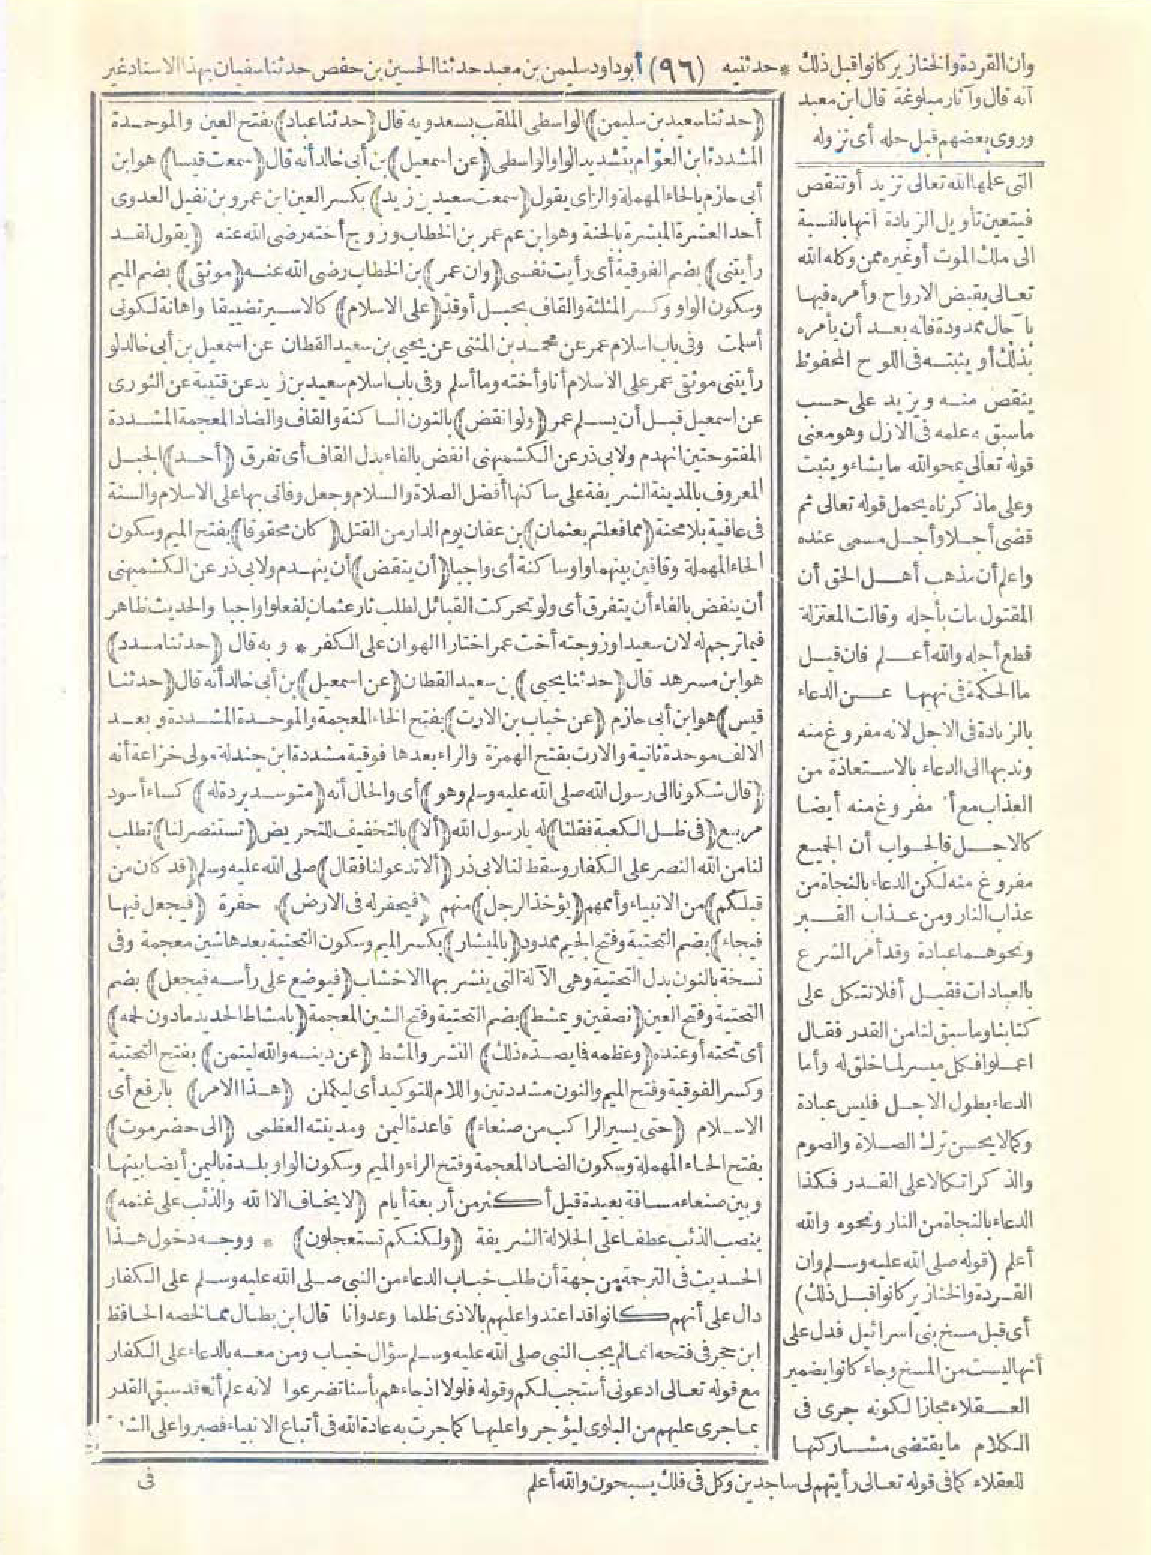 وان القردة والخنازير كانوا قبل ذلك * حدثنيه (٩٦) أبوداود سليمن بن معبد حدثنا الحسين بن حفص حدثنا سفيان بهذا الاسناد غير
أنه قال وآثار مبلوغة قال ابن معبد
وروى بعضهم قبل حله أى نزوله
التى علمها الله تعالى تزيد أو تنقص
فيتعين تأويل الزيادة أنها بالنسبة
الى ملك الموت أو غيره ممن وكله الله
تعالى بقبض الارواح وأمره فيها
بآجال ممدودة فانه بعد أن يأمره
بذلك أو يثبته فى اللوح المحفوظ
ينقص منه ويزيد على حسب
ماسبق به علمه فى الازل وهو معنى
قوله تعالى يمحوالله ما يشاء ويثبت
وعلى ماذكرناه يحمل قوله تعالى ثم
قضى أجلا وأجل مسمى عنده
واعلم أن مذهب أهل الحق أن
المقتول مات بأجله وقالت المعتزلة
قطع أجله والله أعلم فان قيل
ما الحكمة فى نهيها عن الدعاء
بالزيادة فى الاجل لانه مفروغ منه
وندبها الى الدعاء بالاستعاذة من
العذاب مع أنه مفروغ منه أيضا
كالاجل فالجواب أن الجميع
مفروغ منه لكن الدعاء بالنجاة من
عذاب النار ومن عذاب القبر
ونحوهما عبادة وقد أمر الشرع
بالعبادات فقيل أفلا نتكل على
كتابنا وما سبق لنا من القدر فقال
اعملوا فكل ميسر لما خلق له وأما
الدعاء بطول الاجل فليس عبادة
وكما لا يحسن ترك الصلاة والصوم
والذكر اتكالا على القدر فكذا
الدعاء بالنجاة من النار ونحوه والله
أعلم (قوله صلى الله عليه وسلم وان
القردة والخنازير كانوا قبل ذلك)
أى قبل مسخ بنى اسرائيل فدل على
أنها ليست من المسخ وجاء كانوا بضمير
العقلاء مجازا لكونه جرى فى
الكلام ما يقتضى مشاركتها
للعقلاء كما فى قوله تعالى رأيتهم لى ساجدين وكل فى فلك يسبحون والله أعلم
(حدثنا سعيد بن سليمن) الواسطى الملقب بسعدويه قال (حدثنا عباد) بفتح العين والموحدة
المشددة ابن العوام بتشديد الواو الواسطى (عن اسمعيل) بن أبى خالد أنه قال (سمعت قيسا) هو ابن
أبى حازم بالحاء المهملة والزاى يقول (سمعت سعيد بن زيد) بكسر العين ابن عمرو بن نفيل العدوى
أحد العشرة المبشرة بالجنة وهو ابن عم عمر بن الخطاب وزوج أخته رضى الله عنه (يقول لقد
رأيتنى) بضم الفوقية أى رأيت نفسى (وان عمر) بن الخطاب رضى الله عنه (موثقى) بضم الميم
وسكون الواو وكسر المثلثة والقاف بحبل أوقد (على الاسلام) كالاسير تضييقا واهانة لكونى
أسلمت وفى باب اسلام عمر عن محمد بن المثنى عن يحيى بن سعيد القطان عن اسمعيل بن أبى خالد لو
رأيتنى موثقى عمر على الاسلام أنا وأخته وما أسلم وفى باب اسلام سعيد بن زيد عن قتيبة عن الثورى
عن اسمعيل قبل أن يسلم عمر (ولو انقض) بالنون الساكنة والقاف والضاد المعجمة المشددة
المفتوحتين انهدم ولابى ذر عن الكشميهنى انفض بالفاء بدل القاف أى تفرق (أحد) الجبل
المعروف بالمدينة الشريفة على ساكنها أفضل الصلاة والسلام وجعل وفاتى بها على الاسلام والسنة
فى عافية بلا محنة (مما فعلتم بعثمان) بن عفان يوم الدار من القتل (كان محقوقا) بفتح الميم وسكون
الحاء المهملة وقافين بينهما واو ساكنة أى واجبا (أن ينقض) أن ينهدم ولابى ذر عن الكشميهنى
أن ينفض بالفاء أن يتفرق أى ولو تحركت القبائل لطلب ثار عثمان لفعلوا واجبا والحديث ظاهر
فيما ترجم له لان سعيدا وزوجته أخت عمر اختارا الهوان على الكفر * وبه قال (حدثنا مسدد)
هو ابن مسرهد قال (حدثنا يحيى) بن سعيد القطان (عن اسمعيل) بن أبى خالد أنه قال (حدثنا
قيس) هو ابن أبى حازم (عن خباب بن الارت) بفتح الخاء المعجمة والموحدة المشددة وبعد
الالف موحدة ثانية والارت بفتح الهمزة والراء بعدها فوقية مشددة ابن جندلة مولى خزاعة أنه
(قال شكونا الى رسول الله صلى الله عليه وسلم وهو) أى والحال أنه (متوسد بردة له) كساء أسود
مربع (فى ظل الكعبة فقلنا) له يا رسول الله (ألا) بالتخفيف للتحريض (تستنصر لنا) تطلب
لنا من الله النصر على الكفار وسقط لنا لابى ذر (ألا تدعو لنا فقال) صلى الله عليه وسلم (قد كان من
قبلكم) من الانبياء وأممهم (يؤخذ الرجل) منهم (فيحفر له فى الارض) حفرة (فيجعل فيها
فيجاء) بضم التحتية وفتح الجيم ممدود (بالميشار) بكسر الميم وسكون التحتية بعدها شين معجمة وفى
نسخة بالنون بدل التحتية وهى الآلة التى ينشر بها الاخشاب (فيوضع على رأسه فيجعل) بضم
التحتية وفتح العين (نصفين ويمشط) بضم التحتية وفتح الشين المعجمة (بامشاط الحديد مادون لحمه)
أى تحته أو عنده (وعظمه فما يصده ذلك) النشر والمشط (عن دينه والله ليتمن) بفتح التحتية
وكسر الفوقية وفتح الميم والنون مشددتين واللام للتوكيد أى ليكملن (هذا الامر) بالرفع أى
الاسلام (حتى يسير الراكب من صنعاء) قاعدة اليمن ومدينته العظمى (الى حضرموت)
بفتح الحاء المهملة وسكون الضاد المعجمة وفتح الراء والميم وسكون الواو بلدة باليمن أيضا بينها
وبين صنعاء مسافة بعيدة قيل أكثر من أربعة أيام (لا يخاف الا الله والذئب على غنمه)
بنصب الذئب عطفا على الجلالة الشريفة (ولكنكم تستعجلون) * ووجه دخول هذا
الحديث فى الترجمة من جهة أن طلب خباب الدعاء من النبى صلى الله عليه وسلم على الكفار
دال على أنهم كانوا قد اعتدوا عليهم بالاذى ظلما وعدوانا قال ابن بطال مما لخصه الحافظ
ابن حجر فى فتحه انما لم يجب النبى صلى الله عليه وسلم سؤال خباب ومن معه بالدعاء على الكفار
مع قوله تعالى ادعونى أستجب لكم وقوله فلولا اذ جاءهم بأسنا تضرعوا لانه علم أنه قد سبق القدر
بما جرى عليهم من البلوى ليؤجروا عليها كما جرت به عادة الله فى أتباع الانبياء فصبروا على
فى